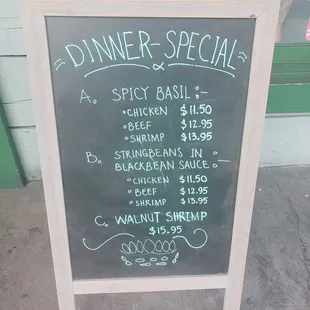 DINNER-SPECIAL
A. SPICY BASIL:-
•CHICKEN $11.50
•BEEF $12.95
•SHRIMP $13.95
B. STRINGBEANS IN
BLACKBEAN SAUCE :-
•CHICKEN $11.50
•BEEF $12.95
•SHRIMP $13.95
C. WALNUT SHRIMP
$15.95